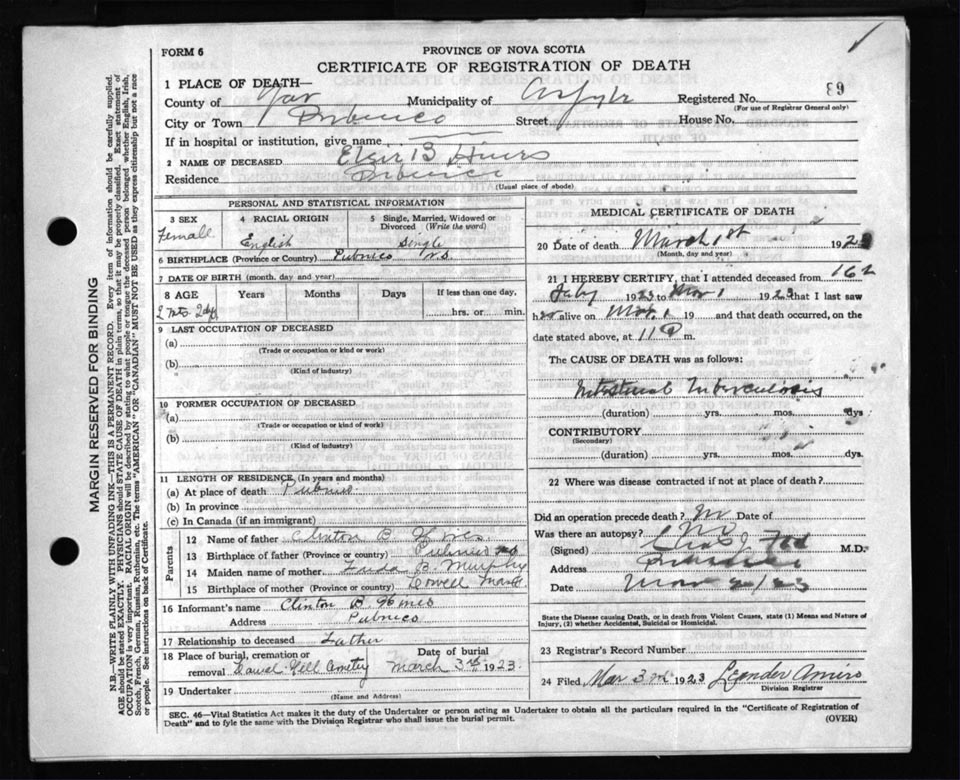 FORM 6
PROVINCE OF NOVA SCOTIA
CERTIFICATE OF REGISTRATION OF DEATH
1 PLACE OF DEATH—
County of Yar Municipality of Argyle Registered No. 89
(For use of Registrar General only)
City or Town Pubnico Street House No.
If in hospital or institution, give name
2 NAME OF DECEASED Elsie B Hines
Residence Pubnico
(Usual place of abode)
PERSONAL AND STATISTICAL INFORMATION
3 SEX 4 RACIAL ORIGIN 5 Single, Married, Widowed or Divorced (Write the word)
Femall English Single
6 BIRTHPLACE (Province or Country) Pubnico N.S.
7 DATE OF BIRTH (month, day and year)
8 AGE Years Months Days If less than one day,
2 mts 2 dys hrs. or min.
9 LAST OCCUPATION OF DECEASED
(a)
(Trade or occupation or kind or work)
(b)
(Kind of industry)
10 FORMER OCCUPATION OF DECEASED
(a)
(Trade or occupation or kind or work)
(b)
(Kind of industry)
11 LENGTH OF RESIDENCE (In years and months)
(a) At place of death Pubnico
(b) In province
(c) In Canada (if an immigrant)
Parents
12 Name of father Clinton B Hines
13 Birthplace of father (Province or country) Pubnico NS
14 Maiden name of mother B. Murphy
15 Birthplace of mother (Province or country) Lowell Mass
16 Informant's name Clinton B. Hines
Address Pubnico
17 Relationship to deceased Father
18 Place of burial, cremation or removal Hill Date of burial March 3rd 1923.
19 Undertaker
(Name and Address)
MEDICAL CERTIFICATE OF DEATH
20 Date of death March 1st 192
(Month, day and year)
21 I HEREBY CERTIFY, that I attended deceased from 16
1923 to Mar 1 1923 that I last saw
her alive on Mar. 1 19 and that death occurred, on the
date stated above, at 11 m.
The CAUSE OF DEATH was as follows:
Intestinal Tuberculosis
(duration) yrs. mos. dys.
CONTRIBUTORY
(Secondary)
(duration) yrs. mos. dys.
22 Where was disease contracted if not at place of death?
Did an operation precede death? No Date of
Was there an autopsy? No
(Signed) Chas J M.D.
Address Pubnico
Date Mar 2/23
State the Disease causing Death, or in death from Violent Causes, state (1) Means and Nature of
Injury, (2) whether Accidental, Suicidal or Homicidal.
23 Registrar's Record Number
24 Filed Mar 3 1923 Leander Amiro
Division Registrar
SEC. 46—Vital Statistics Act makes it the duty of the Undertaker or person acting as Undertaker to obtain all the particulars required in the "Certificate of Registration of
Death" and to fyle the same with the Division Registrar who shall issue the burial permit. (OVER)
MARGIN RESERVED FOR BINDING
N.B.—WRITE PLAINLY WITH UNFADING INK—THIS IS A PERMANENT RECORD. Every item of information should be carefully supplied.
AGE should be stated EXACTLY. PHYSICIANS should STATE CAUSE OF DEATH in plain terms, so that it may be properly classified. Exact statement of
OCCUPATION is very important. RACIAL ORIGIN will be described by stating to what people or tongue the deceased person belonged whether English, Irish,
Scotch, French, German, Russian, Ruthenian, etc. The terms "AMERICAN" OR "CANADIAN" MUST NOT BE USED as they express citizenship but not a race
or people. See instructions on back of Certificate.